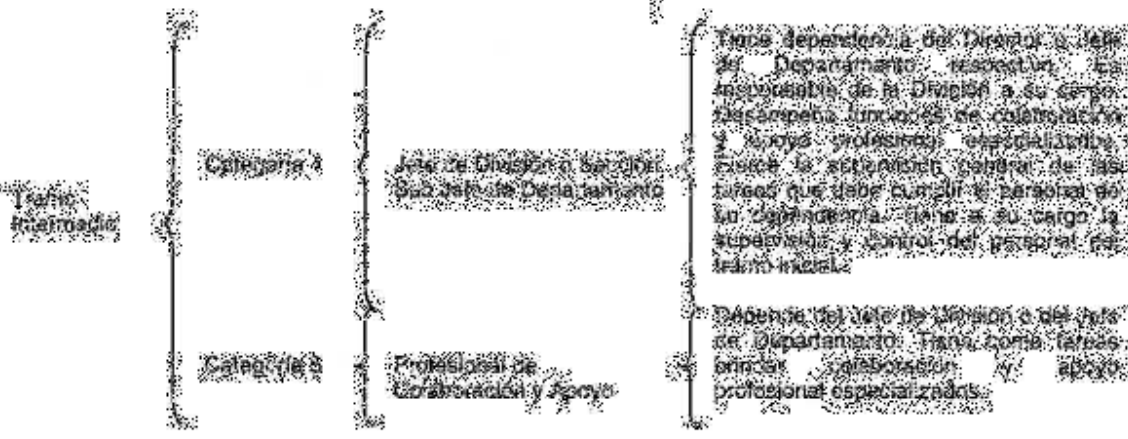 Tramo
Intermedio
Categoría 4
Jefe de División o Sección
Sub Jefe de Departamento
Tiene dependencia del Director o Jefe
de Departamento respectivo. Es
responsable de la División a su cargo.
Desempeña funciones de colaboración
y apoyo profesional especializado.
Ejerce la supervisión general de las
tareas que debe cumplir el personal en
su dependencia. Tiene a su cargo la
supervisión y control del personal del
tramo inicial.
Categoría 5
Profesional de
Colaboración y Apoyo
Depende del Jefe de División o del Jefe
de Departamento. Tiene como tareas
brindar colaboración y apoyo
profesional especializados.